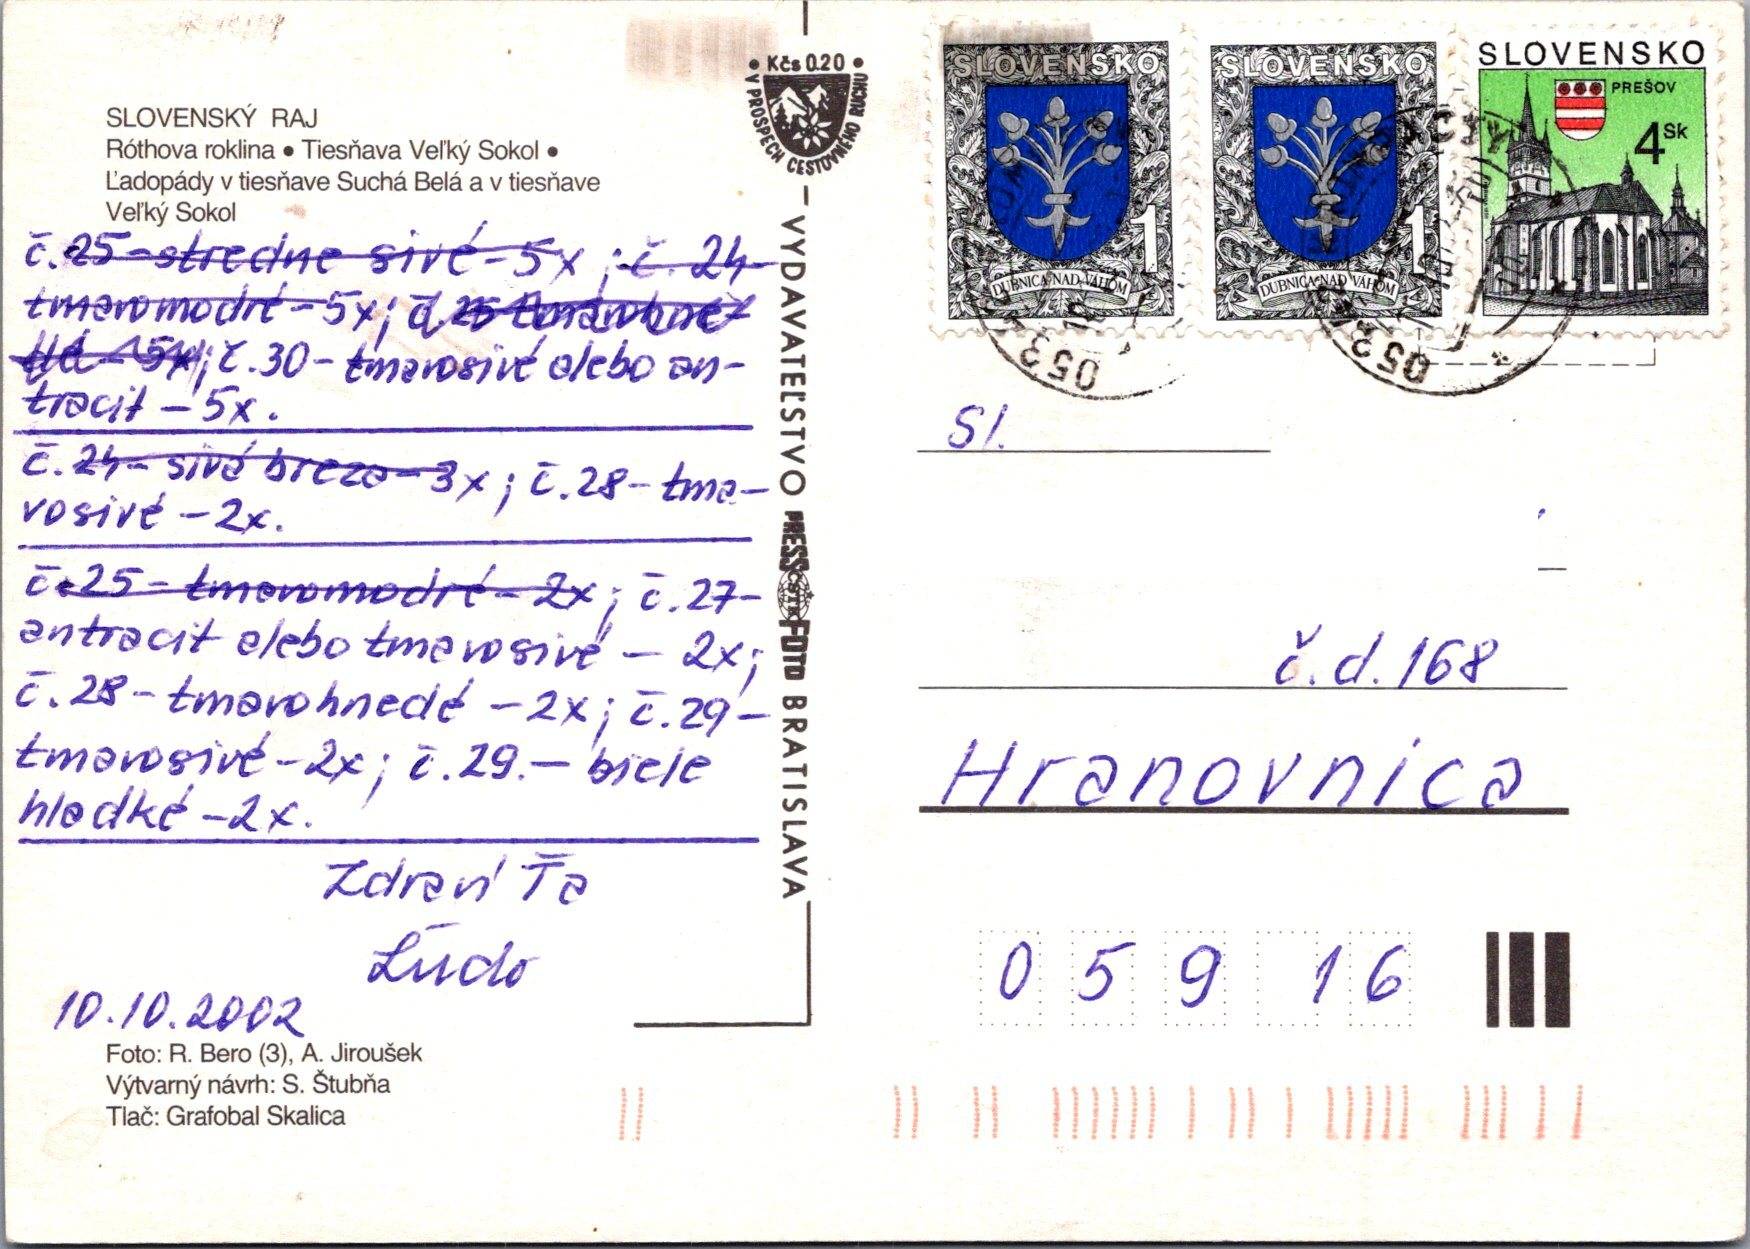 SLOVENSKÝ RAJ
Róthova roklina • Tiesňava Veľký Sokol •
Ľadopády v tiesňave Suchá Belá a v tiesňave
Veľký Sokol
č.25-stredne sivé-5x; č. 24-
tmavomodré-5x; č. 26-tmavohne-
dé-5x; č.30-tmavosivé alebo an-
tracit-5x.
č.24-sivá breza-3x; č.28-tma-
vosivé-2x.
č.25-tmavomodré-2x; č.27-
antracit alebo tmavosivé - 2x;
č.28-tmavohnedé -2x; č.29-
tmavosivé-2x; č.29.-biele
hladké-2x.
Zdraví Ťa
Ľudo
10.10.2002
Foto: R. Bero (3), A. Jiroušek
Výtvarný návrh: S. Štubňa
Tlač: Grafobal Skalica
• Kčs 0.20 •
V PROSPECH CESTOVNÉHO RUCHU
VYDAVATEĽSTVO PRESSFOTO BRATISLAVA
ČSTK
SLOVENSKO
1
DUBNICA NAD VÁHOM
SLOVENSKO
1
DUBNICA NAD VÁHOM
SLOVENSKO
PREŠOV
4Sk
053
053
Sl.
č.d.168
Hranovnica
059 16